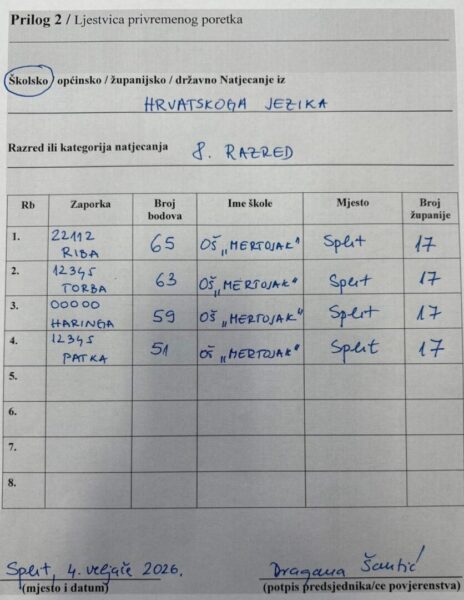 Prilog 2 / Ljestvica privremenog poretka
Školsko / općinsko / županijsko / državno Natjecanje iz
HRVATSKOGA JEZIKA
Razred ili kategorija natjecanja 8. RAZRED
Rb Zaporka Broj bodova Ime škole Mjesto Broj županije
1. 22112 RIBA 65 OŠ „MERTOJAK" Split 17
2. 12345 TORBA 63 OŠ „MERTOJAK" Split 17
3. 00000 HARINGA 59 OŠ „MERTOJAK" Split 17
4. 12345 PATKA 51 OŠ „MERTOJAK" Split 17
5.
6.
7.
8.
Split, 4. veljače 2026. Dragana Šantić
(mjesto i datum) (potpis predsjednika/ce povjerenstva)